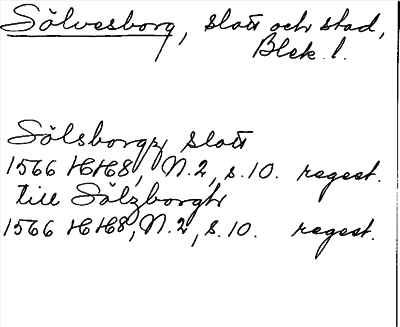 Sölvesborg, slott och stad,
Blek. l.
Sölsborgz slott
1566 HH8, N.2, s.10. regest.
till Sölzborgh
1566 HH8, N.2, s.10. regest.